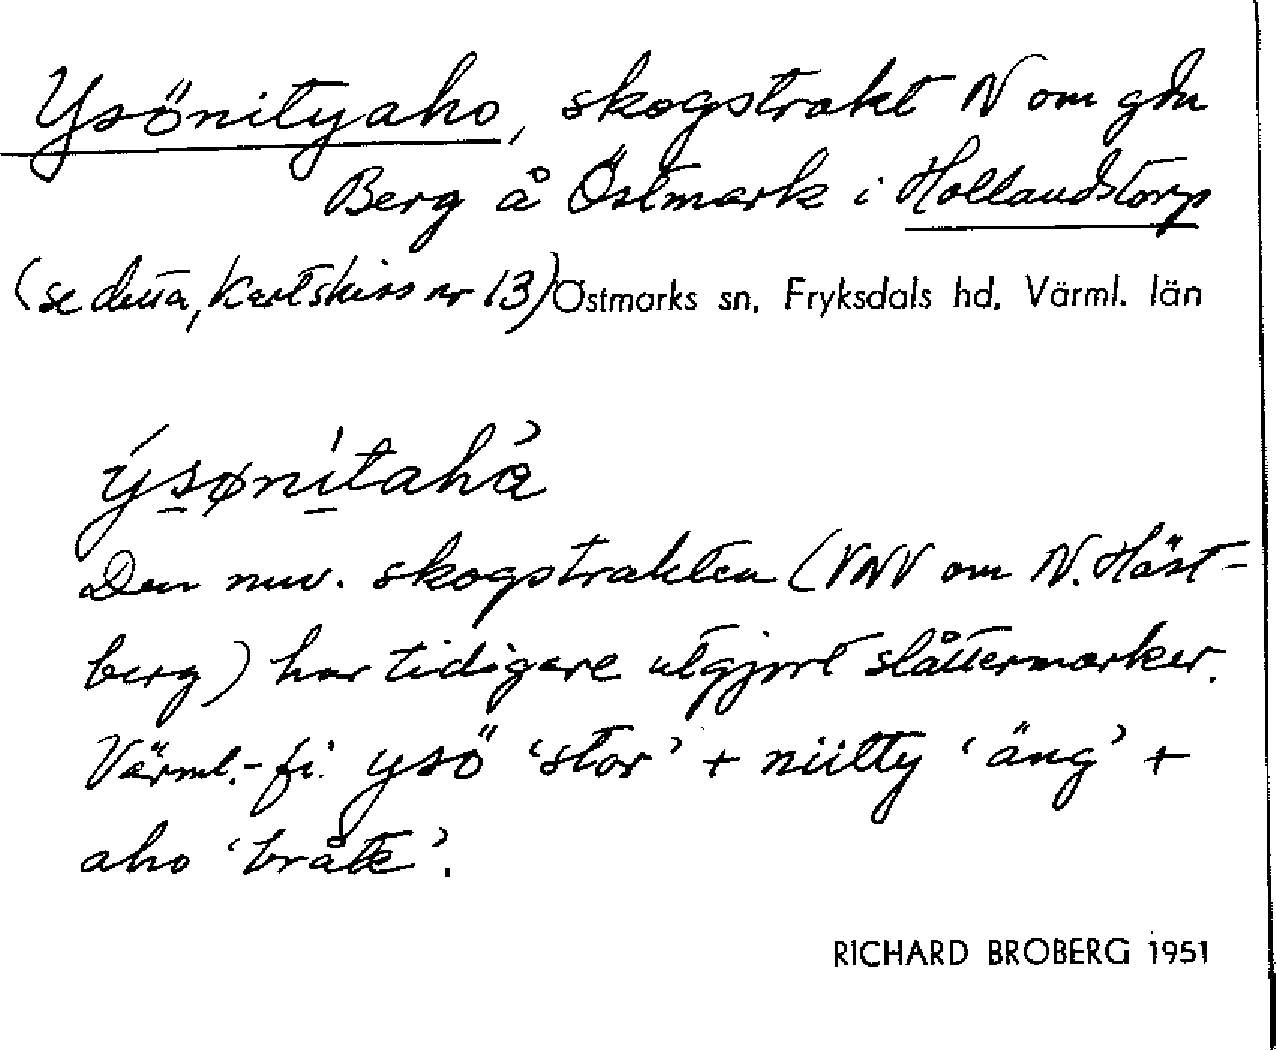 Ysönityaho, skogstrakt N om gdn
Berg å Östmark i Hollandstorp
(se detta, kartskiss nr 13) Östmarks sn. Fryksdals hd. Värml. län
ýsønìtahà
Den nuv. skogstrakten (VNV om N. Häst-
berg) har tidigare utgjort slåttermarker.
Värml.-fi. ysö 'stor' + niitty 'äng' +
aho 'bråte'.
RICHARD BROBERG 1951